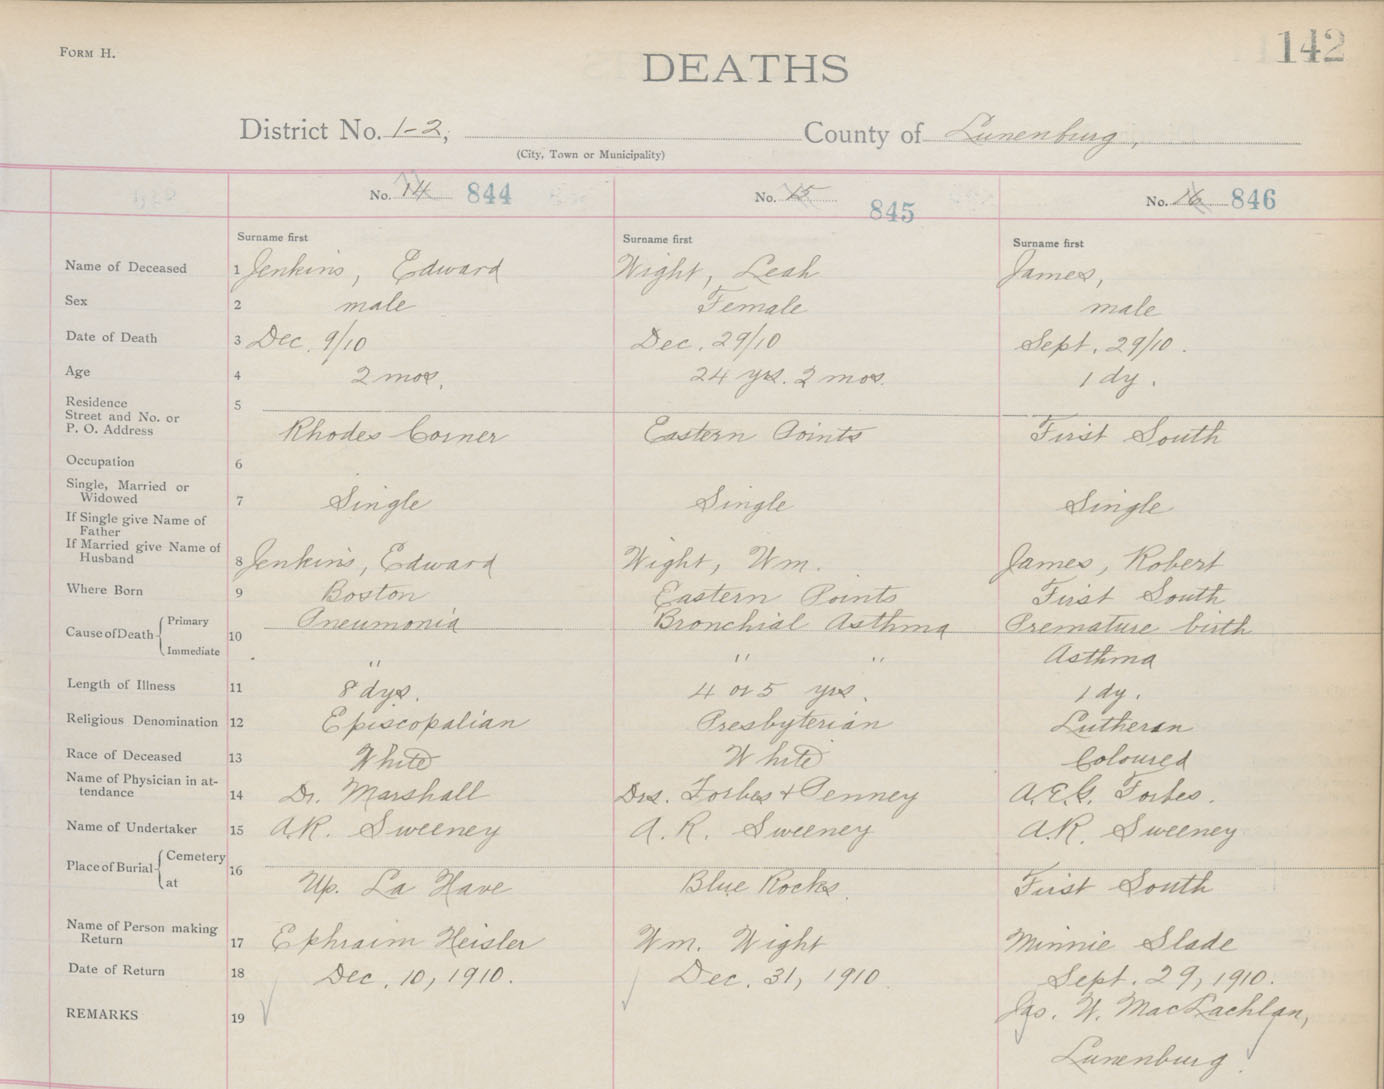 FORM H.
142
DEATHS
District No. 1-2, County of Lunenburg,
(City, Town or Municipality)
No. 14 844 No. 15 845 No. 16 846
Surname first Surname first Surname first
Name of Deceased 1 Jenkins, Edward Wight, Leah James,
Sex 2 male Female male
Date of Death 3 Dec. 9/10 Dec. 29/10 Sept. 29/10.
Age 4 2 mos. 24 yrs. 2 mos. 1 dy.
Residence 5
Street and No. or
P. O. Address Rhodes Corner Eastern Points First South
Occupation 6
Single, Married or
Widowed 7 Single Single Single
If Single give Name of
Father
If Married give Name of
Husband 8 Jenkins, Edward Wight, Wm. James, Robert
Where Born 9 Boston Eastern Points First South
Cause of Death Primary 10 Pneumonia Bronchial Asthma Premature birth
Immediate " " " Asthma
Length of Illness 11 8 dys. 4 or 5 yrs. 1 dy.
Religious Denomination 12 Episcopalian Presbyterian Lutheran
Race of Deceased 13 White White Coloured
Name of Physician in at-
tendance 14 Dr. Marshall Drs. Forbes + Penney A.E.G. Forbes.
Name of Undertaker 15 A.R. Sweeney A. R. Sweeney A.R. Sweeney
Place of Burial Cemetery 16
at Up. La Have Blue Rocks. First South
Name of Person making
Return 17 Ephraim Heisler Wm. Wight Minnie Slade
Date of Return 18 Dec. 10, 1910. Dec. 31, 1910. Sept. 29, 1910.
REMARKS 19 Jas. W. MacLachlan,
Lunenburg.